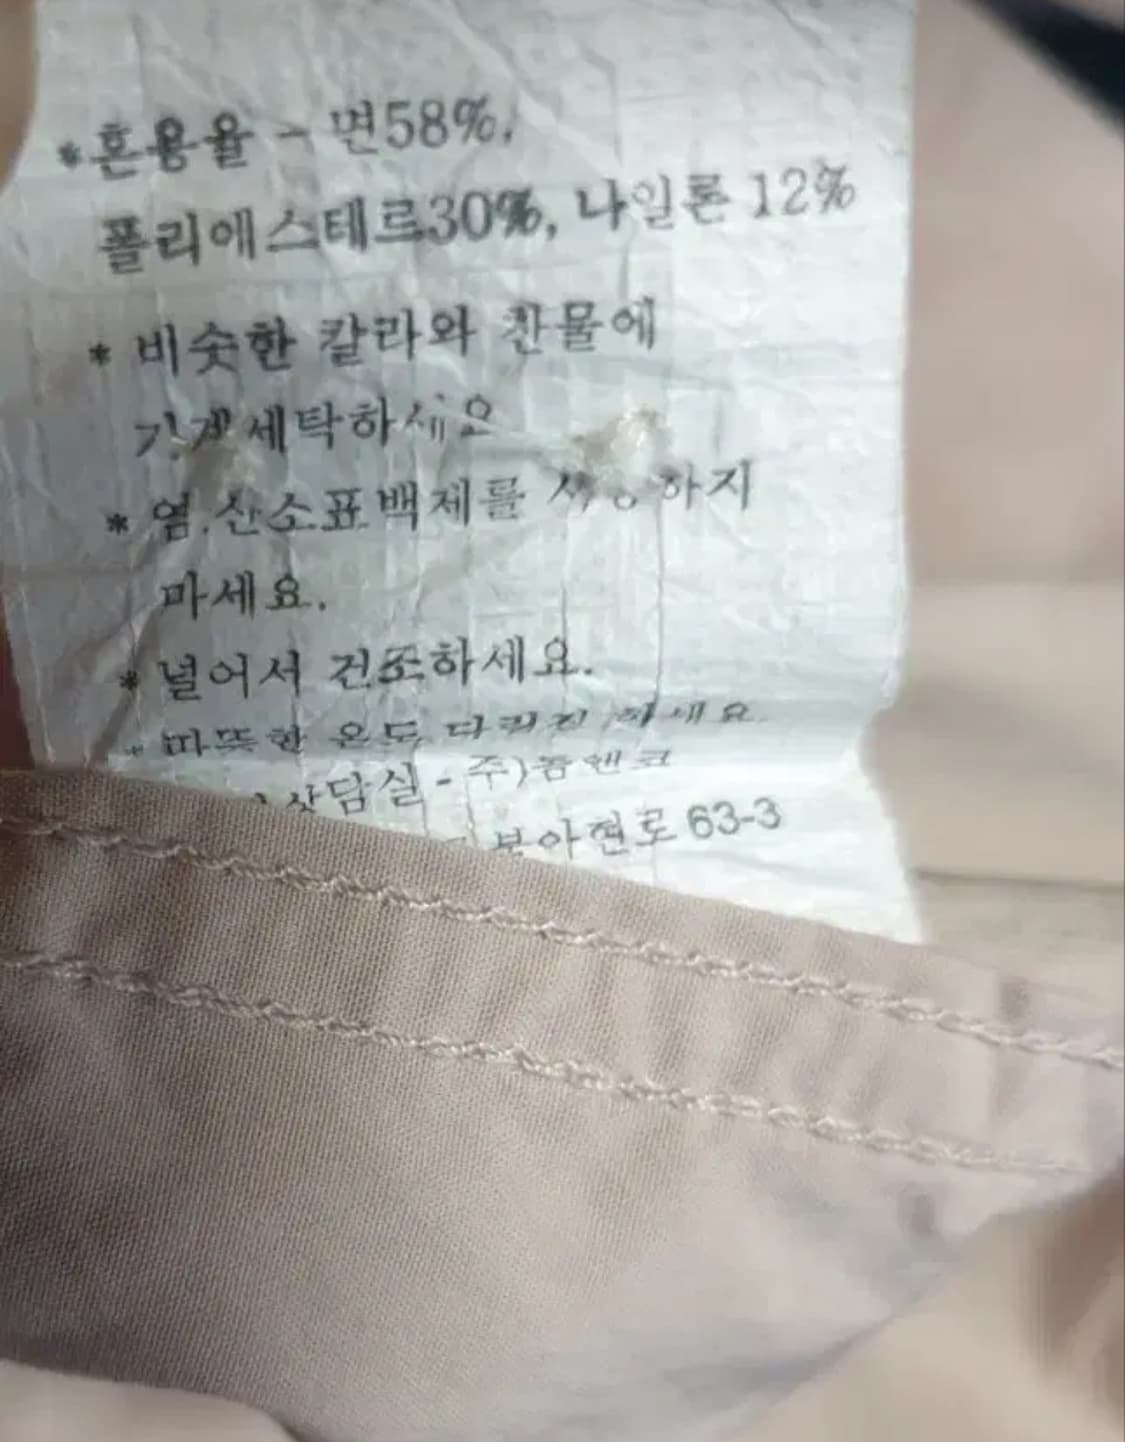 *혼용율 - 면58%,
폴리에스테르30%, 나일론 12%
* 비슷한 칼라와 찬물에
기계세탁하세요
* 염.산소표백제를 사용하지
마세요.
* 널어서 건조하세요.
* 따뜻한 온도 다림질 하세요.
상담실 - 주)
북아현로 63-3